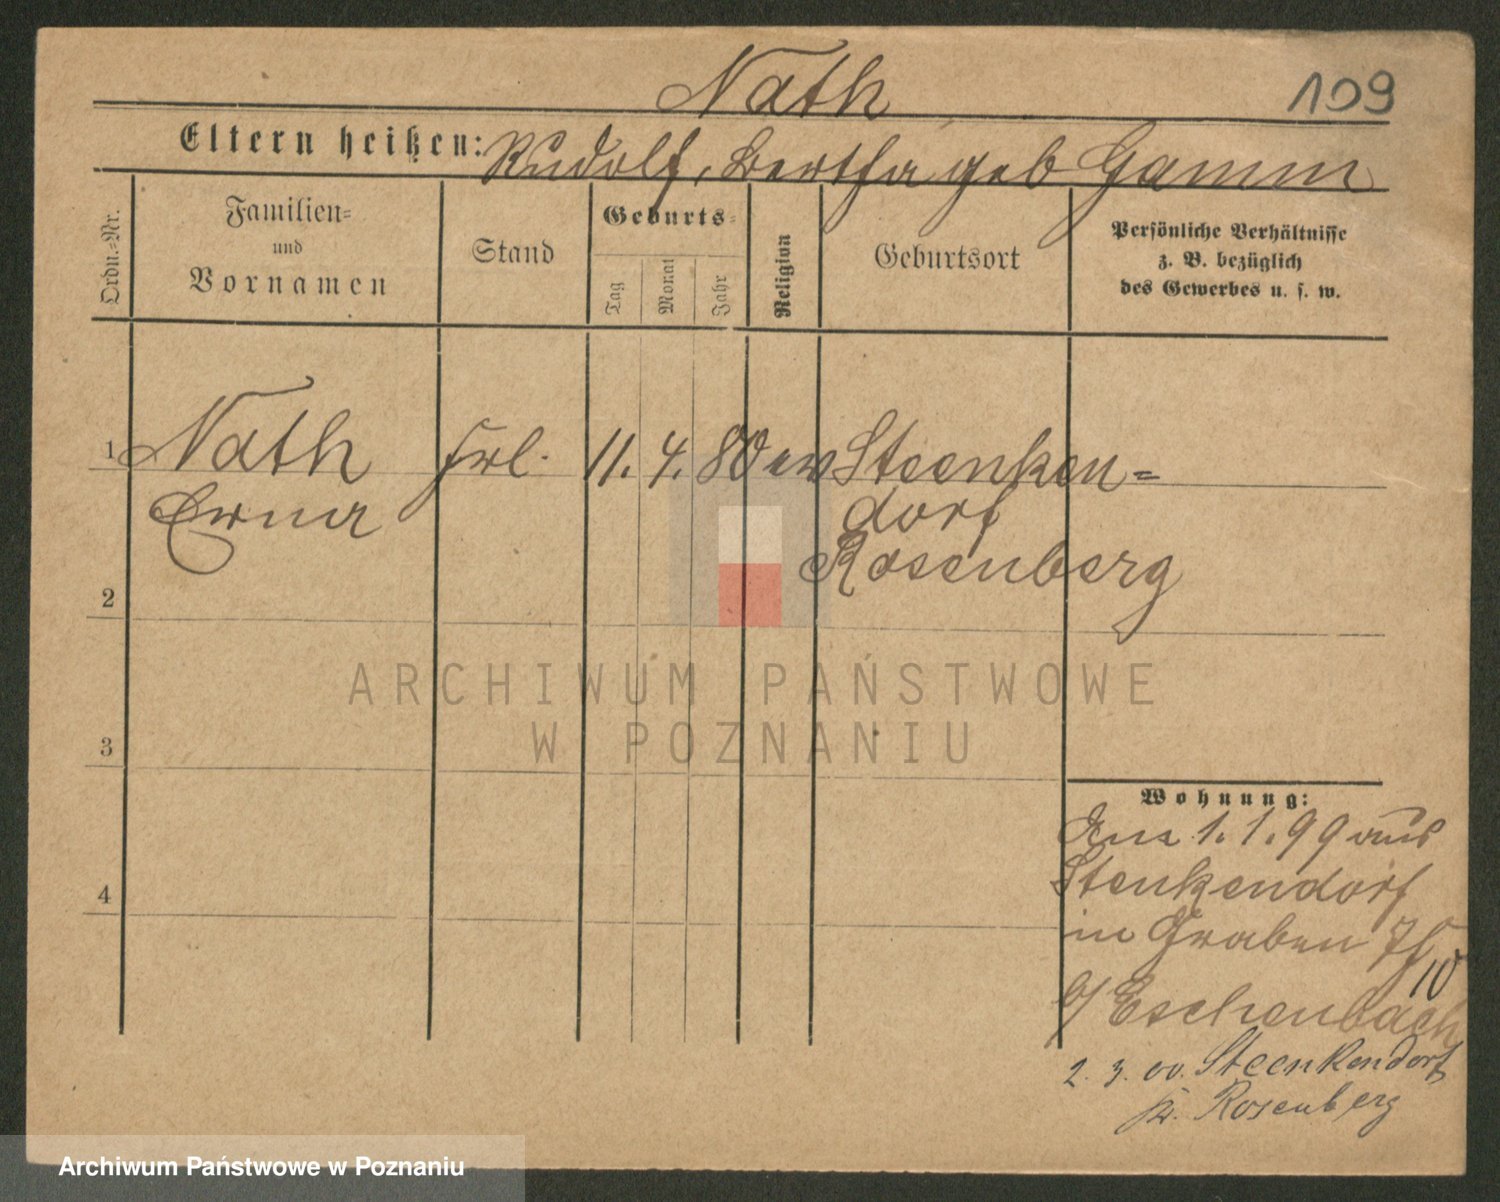 Nath
109
Eltern heißen: Rudolf, Bertha geb Gamm
Ordn.=Nr.
Familien=
und
Vornamen
Stand
Geburts=
Tag
Monat
Jahr
Religion
Geburtsort
Persönliche Verhältnisse
z. B. bezüglich
des Gewerbes u. s. w.
1 Nath Frl. 11. 4. 80 ev Steenken=
Erna dorf
Rosenberg
2
3
4
Wohnung:
Am 1.1.99 aus
Stenkendorf
in Graben
b/ Eschenbach
2. 3. 00. Steenkendorf
Kr. Rosenberg
ARCHIWUM PAŃSTWOWE
W POZNANIU
Archiwum Państwowe w Poznaniu